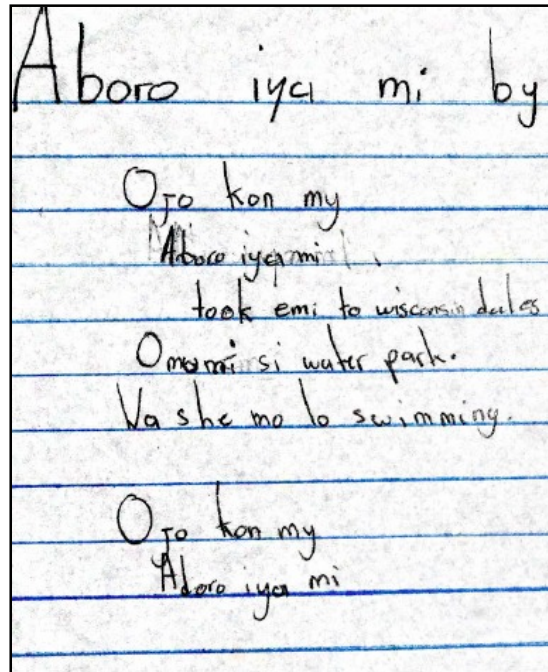 Aboro iya mi by
Ojo kon my
Aboro iya mi
took emi to wisconsin dales
Omo mi si water park.
Wa she mo lo swimming.
Ojo kon my
Aboro iya mi